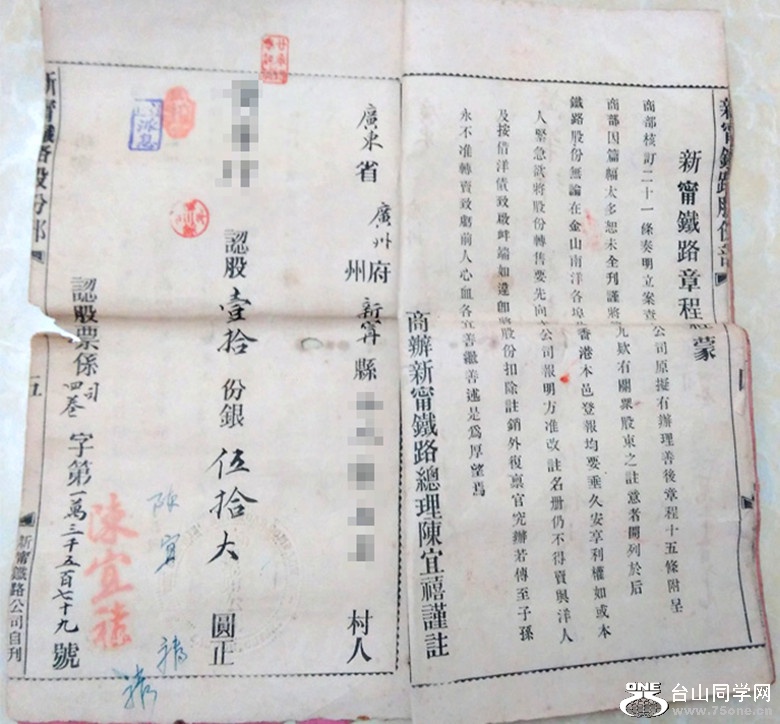 新甯鐵路股份部
新甯鐵路章程經蒙
商部核訂二十一條奏明立案查公司原擬有辦理善後章程十五條附呈
商部因篇幅太多恕未全刊謹將九欵有關衆股東之註意者開列於後
鐵路股份無論在金山南洋各埠香港本邑登報均要垂久安享利權如或本
人緊急欲將股份轉售要先向公司報明方准改註名册仍不得賣與洋人
及按借洋債致啟衅端如違卽將股份扣除註銷外復禀官究辦若傳至子孫
永不准轉賣致虧前人心血各宜善繼善述是爲厚望焉
商辦新甯鐵路總理陳宜禧謹註
廣東省廣州府州新寧縣
村人
認股壹拾份銀伍拾大圓正
陳宜禧
派息
認股票係司四卷字第一萬三千五百七十九號
陳宜禧
新甯鐵路股份部
五
新甯鐵路公司自刊
ONE
台山同学网
www.75one.cn